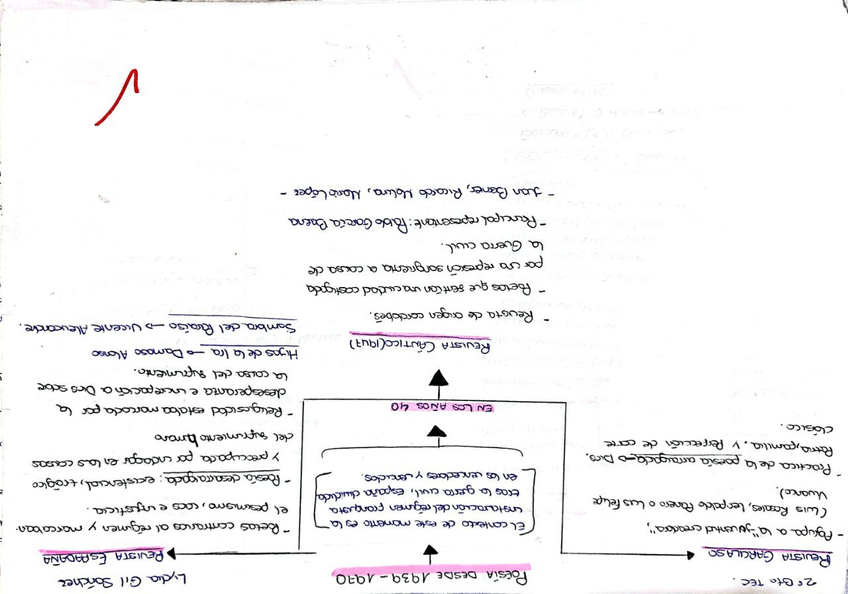 2º Bto TEC.
Lydia Gil Sánchez
POESÍA DESDE 1939-1970
[El contexto de este momento es la
instauración del régimen franquista
tras la guerra civil. España dividida
en los vencedores y vencidos.]
EN LOS AÑOS 40
REVISTA GARCILASO
- Agrupa a la "juventud creadora",
(Luis Rosales, Leopoldo Panero o Luis Felipe
Vivanco)
- Practica de la poesía arraigada → Dios.
Patria, familia. y Perfección de corte
clásico.
REVISTA CÁNTICO (1947)
- Revista de origen cordobés.
- Poetas que sentían una ciudad castigada
por una represión sangrienta a causa de
la Guerra civil.
- Principal representante: Pablo García Baena
- Juan Bernier, Ricardo Molina, Mario López -
REVISTA ESPADAÑA
- Poetas contrarios al régimen y marcaban
el pesimismo, caos, e injusticia.
- Poesía desarraigada: existencial, trágico
y preocupada por indagar en las causas
del sufrimiento humano
- Religiosidad estaba marcada por la
desesperanza e increpación a Dios sobre
la causa del sufrimiento.
Hijos de la Ira → Damaso Alonso
Sombra del Paraíso → Vicente Aleixandre.